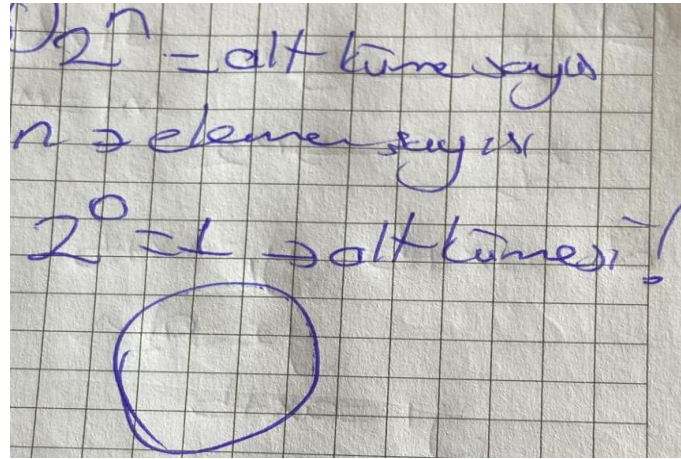 2ⁿ = alt küme sayısı
n → eleman sayısı
2⁰ = 1 → alt kümesi!